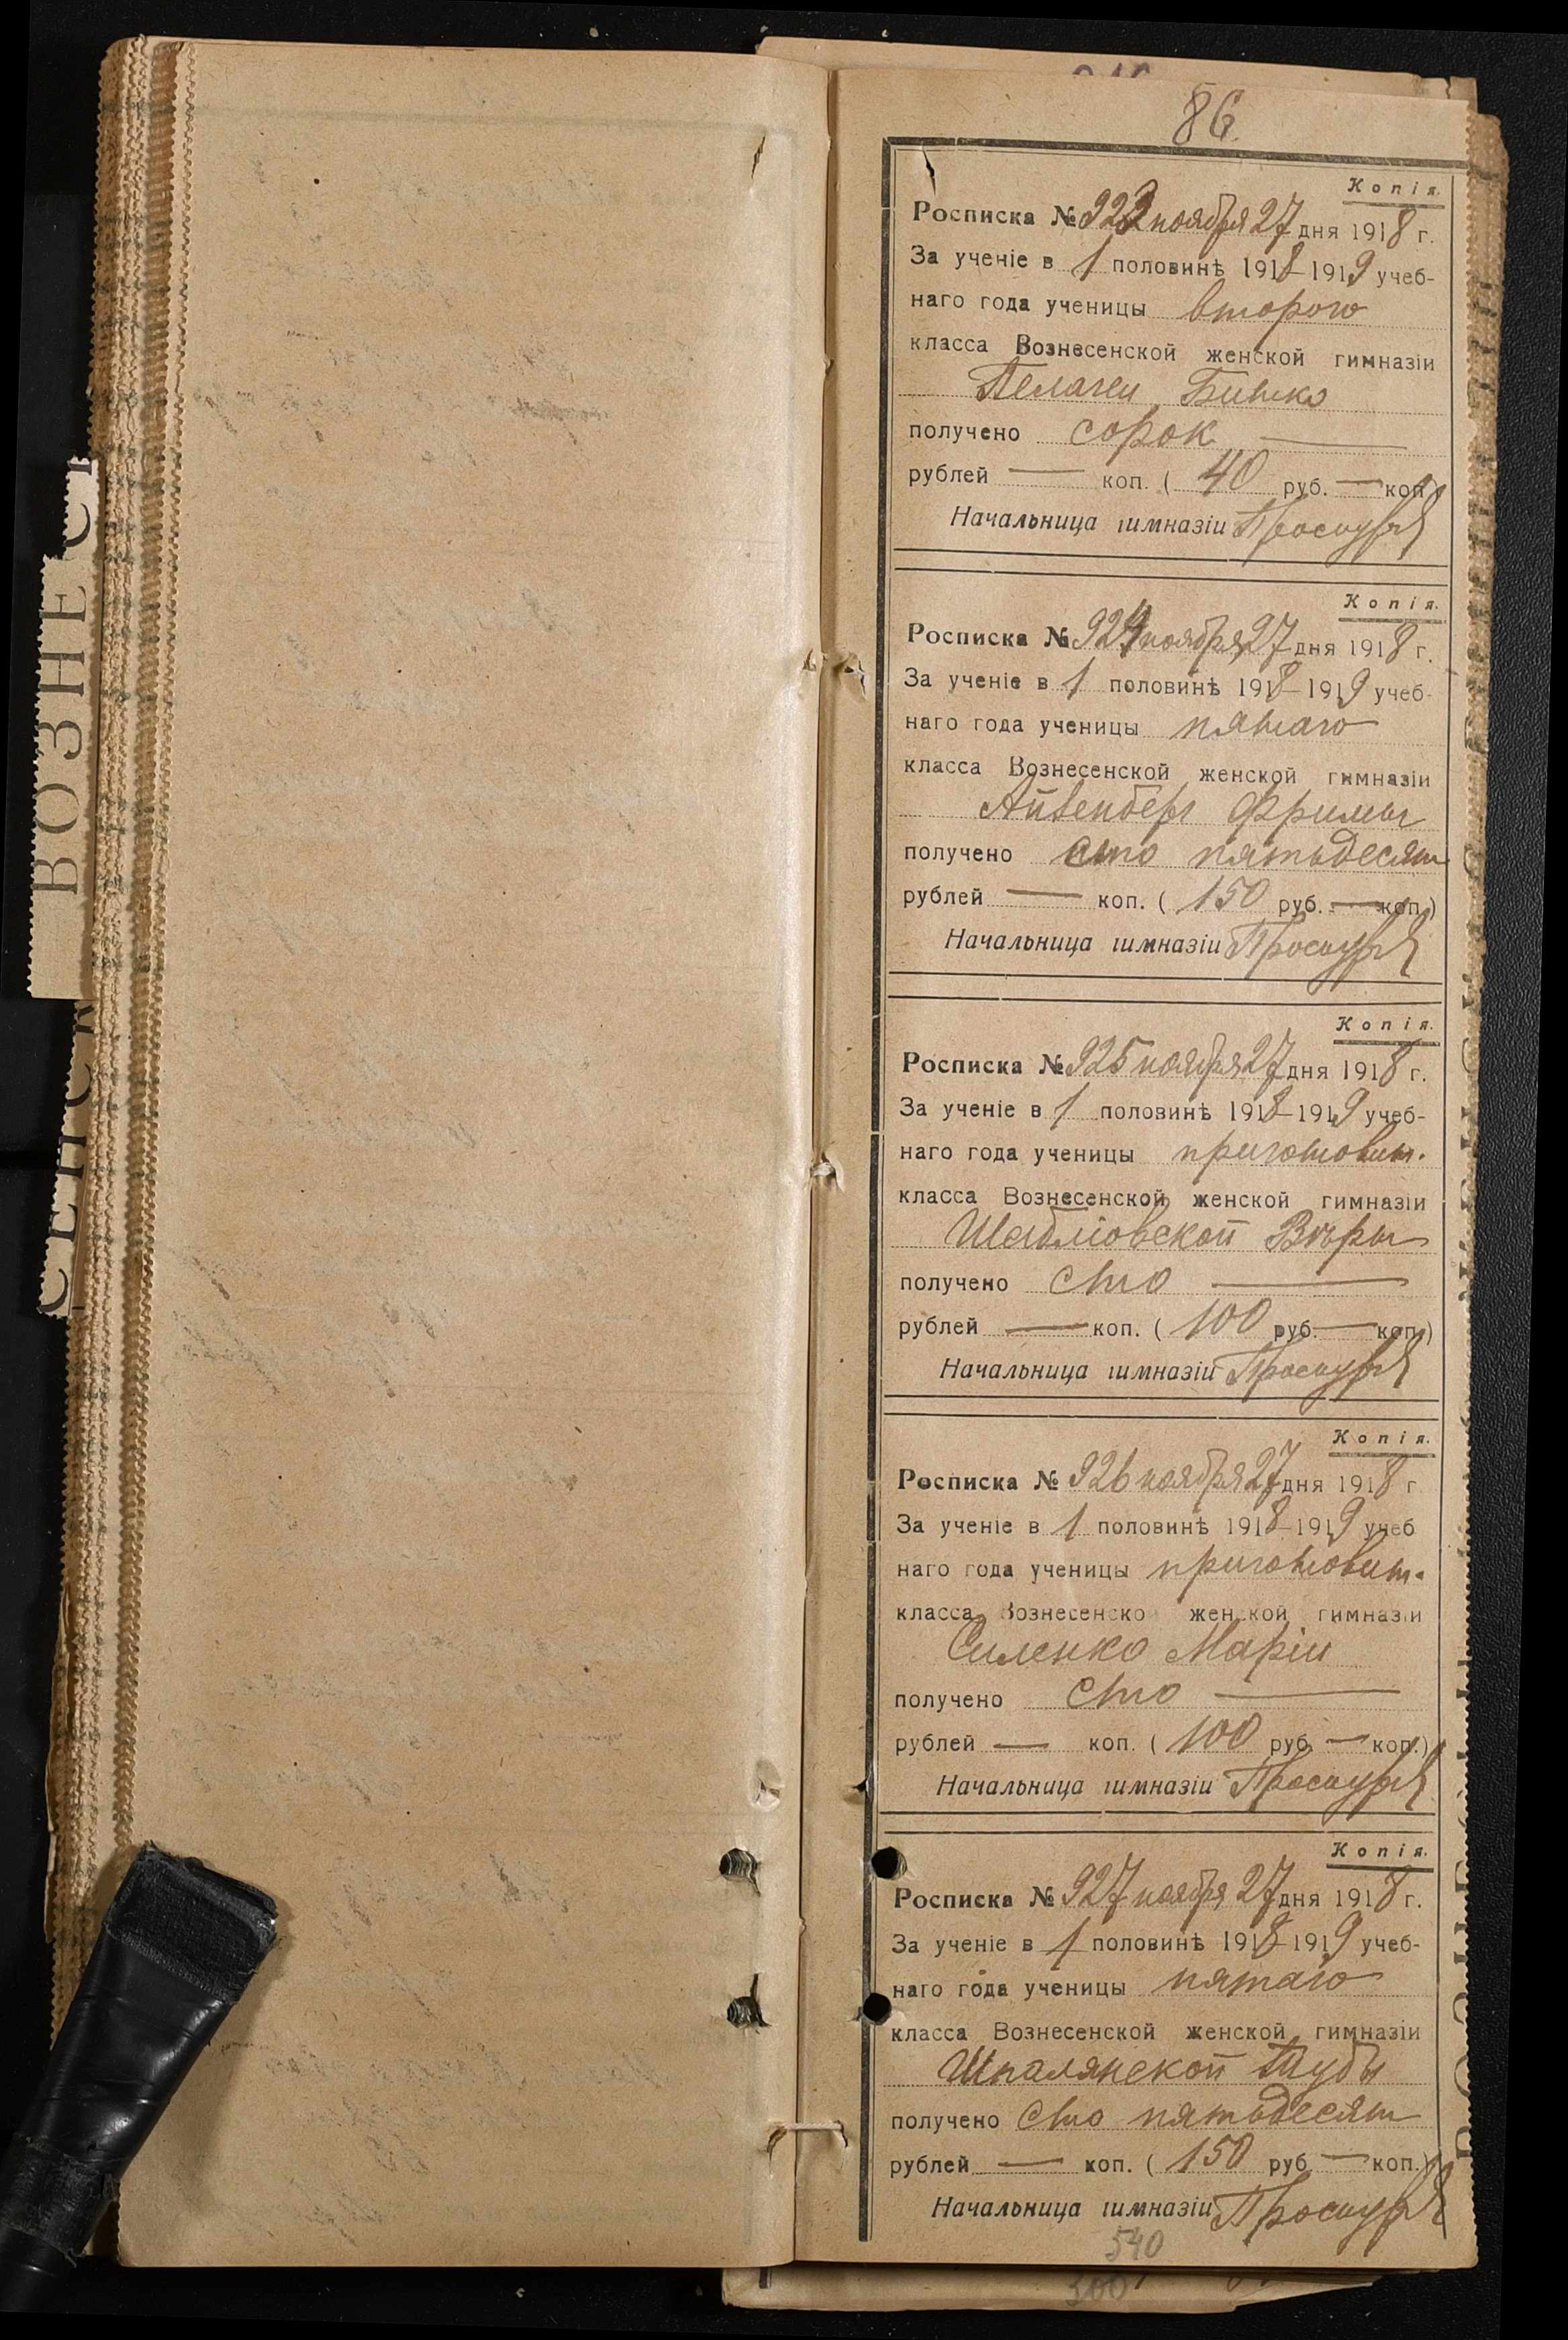 86.
Копія.
Росписка № 923 ноября 27 дня 1918 г.
За ученіе в 1 половинѣ 1918-1919 учеб-
наго года ученицы второго
класса Вознесенской женской гимназіи
Пелагеи Бишко
получено сорок —
рублей — коп. ( 40 руб. — коп.)
Начальница гимназіи
Копія.
Росписка № 924 ноября 27 дня 1918 г.
За ученіе в 1 половинѣ 1918-1919 учеб-
наго года ученицы пятаго
класса Вознесенской женской гимназіи
Айзенберг Фримы
получено сто пятьдесят
рублей — коп. ( 150 руб. — коп.)
Начальница гимназіи
Копія.
Росписка № 925 ноября 27 дня 1918 г.
За ученіе в 1 половинѣ 1918-1919 учеб-
наго года ученицы приготовит.
класса Вознесенской женской гимназіи
Шабліовской Вѣры
получено сто —
рублей — коп. ( 100 руб. — коп.)
Начальница гимназіи
Копія.
Росписка № 926 ноября 27 дня 1918 г
За ученіе в 1 половинѣ 1918-1919 учеб
наго года ученицы приготовит.
класса Вознесенско женской гимназіи
Силенко Маріи
получено сто —
рублей — коп. ( 100 руб. — коп.)
Начальница гимназіи
Копія.
Росписка № 927 ноября 27 дня 1918 г.
За ученіе в 1 половинѣ 1918-1919 учеб-
наго года ученицы пятаго
класса Вознесенской женской гимназіи
Шполянской
получено сто пятьдесят
рублей — коп. ( 150 руб — коп.)
Начальница гимназіи
540
ВОЗНЕ